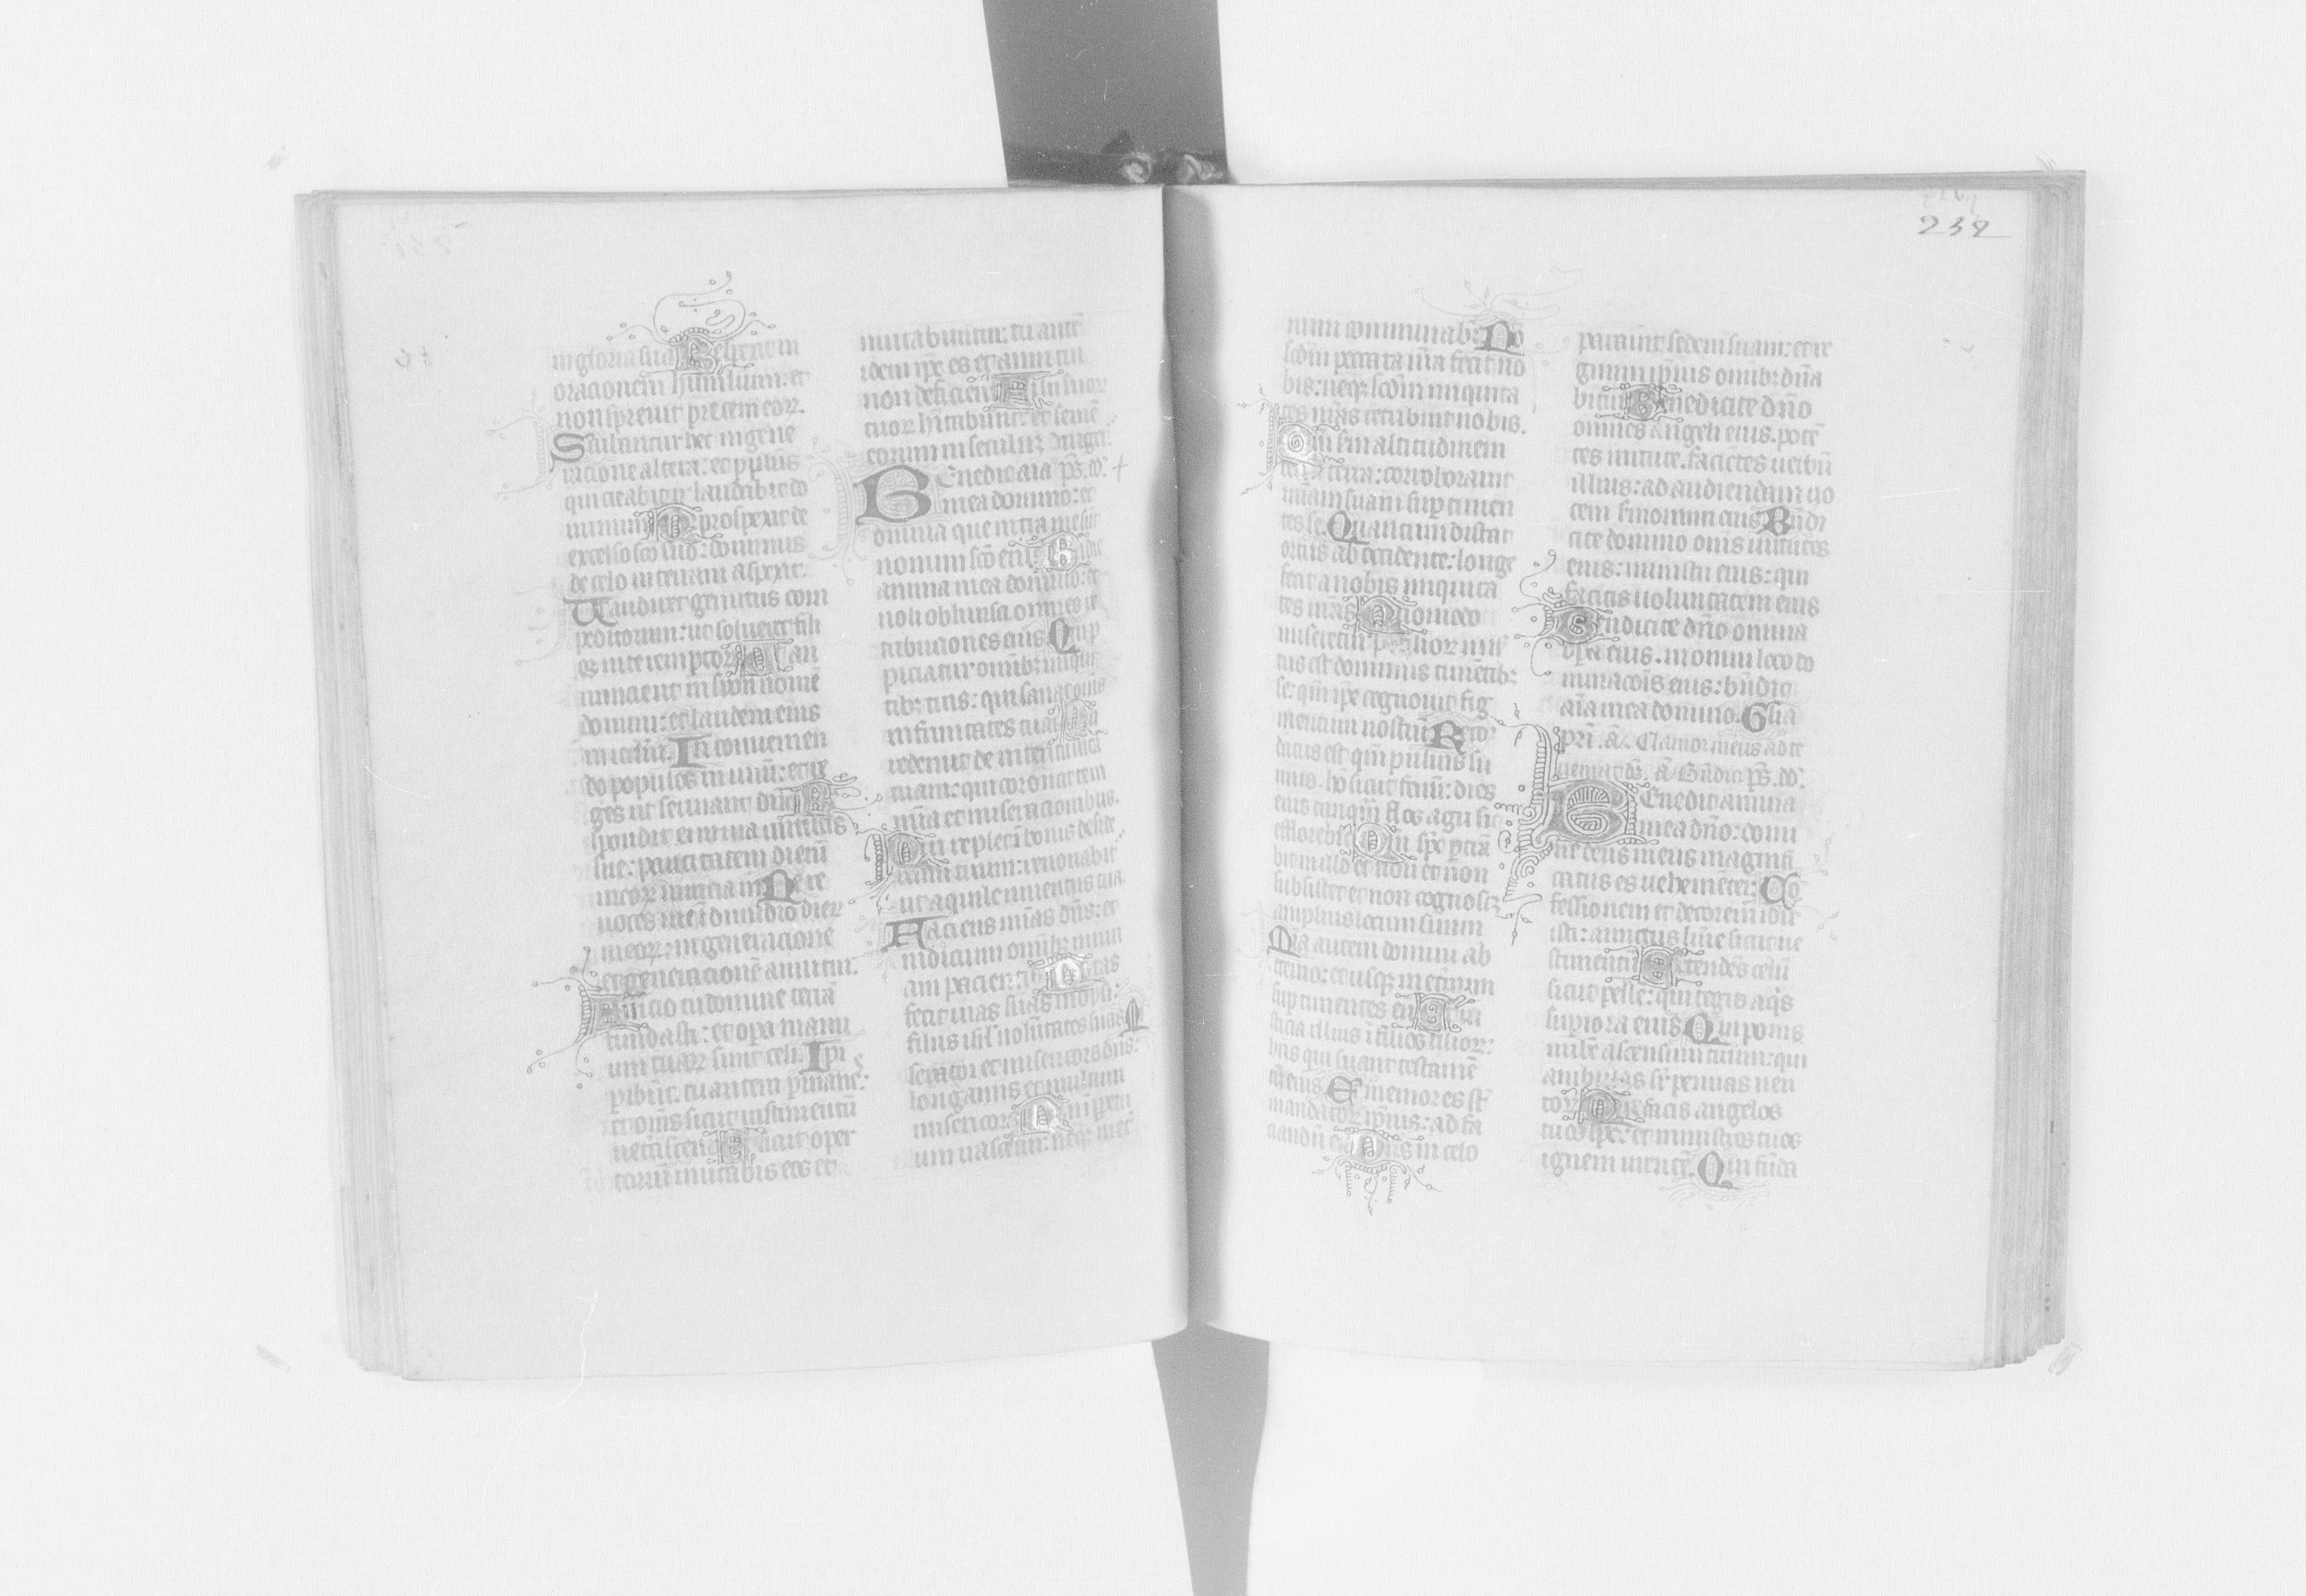 in gloria sua Respexit in
orationem humilium: et
non sprevit precem eorꝝ.
Scribantur hec in gene
ratione altera: et populus
qui creabitur laudabit do
minum Quia prospexit de
excelso sco suo: dominus
de celo in terram aspexit.
Ut audiret gemitus com
peditorum: ut solveret fili
os interemptorꝝ Ut an
nuncient in syon nomē
domini: et laudem eius
in ierlm̄. In convenien
do populos in unū: et re
ges ut serviant dn̄o Re
spondit ei in via virtutis
sue: paucitatem dierū
meorꝝ nuncia m̄ Ne re
voces me ī dimidio dierꝝ
meorꝝ: in generatione
et generationē anni tui.
Initio tu domine terrā
fundasti: et opera manu
um tuarꝝ sunt celi. Ipi
peribūt. tu autem permanes:
et om̄s sicut vestimentū
veterascent Et sicut oper
toriū mutabis eos et
mutabuntur: tu autē
idem ipē es et anni tui
non deficient Filii servorꝝ
tuorꝝ hītabunt: et semē
eorum in seculum diriget᷑
Benedic aīa ps̄. dd. +
mea domino: et
omnia que intra me sūt
nomini sc̄o eius Benedic
anima mea domino: et
noli oblivisci omnes re
tributiones eius Qui p
piciatur omībꝫ iniqui
tibꝫ tuis: qui sanat om̄s
infirmitates tuas Qui
redemit de interitu vitā
tuam: qui coronat te in
mīa et miserationibus.
Qui replet ī bonis deside
rium tuum: renovabit᷑
ut aquile iuventus tua.
Faciens mīas dn̄s: et
iudicium omībꝫ iniuri
am pacientibꝫ Notas
fecit vias suas moysi:
filiis isrl̄ volūtates suas
Miserator et misericors dn̄s:
longanimis et multum
misericors Non in perpetu
um irascetur: neqꝫ in et
num comminabit᷑ Nō
scdm̄ peccata nr̄a fecit no
bis: neqꝫ scdm̄ iniquita
tes nr̄as retribuit nobis.
Qm̄ scdm̄ altitudinem
celi a terra: corroboravit
mīam suam super timen
tes se Quantum distat
ortus ab occidente: longe
fecit a nobis iniquita
tes nr̄as Quomodo
miseretur pater filiorꝝ mis̄
tus est dominus timētibꝫ
se: qm̄ ipē cognovit fig
mentum nostrū Recor
datus est qm̄ pulvis su
mus. hō sicut fenū: dies
eius tanqm̄ flos agri sic
efflorebit Qm̄ spc̄ pertrā
bit in illo et non et non
subsistet et non cognoscet
amplius locum suum
Mīa autem domini ab
eterno: et usqꝫ in eternum
super timentes eum Et iu
sticia illius ī filios filiorꝝ:
hiis qui servant testamē
tū eius Et memores sūt
mandatorꝝ ipius: ad fa
ciendū ea Dn̄s in celo
232
paravit sedem suam: et re
gnum ipius omībꝫ dn̄a
bitur Benedicite dn̄o
omnes angeli eius. potē
tes virtute. faciētes verbū
illius: ad audiendam vo
cem sermonum eius Bn̄di
cite domino om̄s virtutes
eius: ministri eius: qui
facitis voluntatem eius
Bendicite dn̄o omnia
opera eius. in omni loco do
minacōis eius: bn̄dic
aīa mea domino. Gl̄ia
pri ā. Clamor meus ad te
veniat ds̄. ā. Bn̄dic ps̄. dd.
Benedic anima
mea dn̄o: domi
ne deus meus magnifi
catus es vehemēter: Cō
fessionem et decorem īdu
isti: amictus lūīe sicut ve
stimento Extendēs celū
sicut pelle: qui tegis aqͥs
supiora eius Qui ponis
nubē ascensum tuum: qui
ambulas sr̄ pennas ven
torꝝ Qui facis angelos
tuos sps̄: et ministros tuos
ignem urentē. Qui fūda